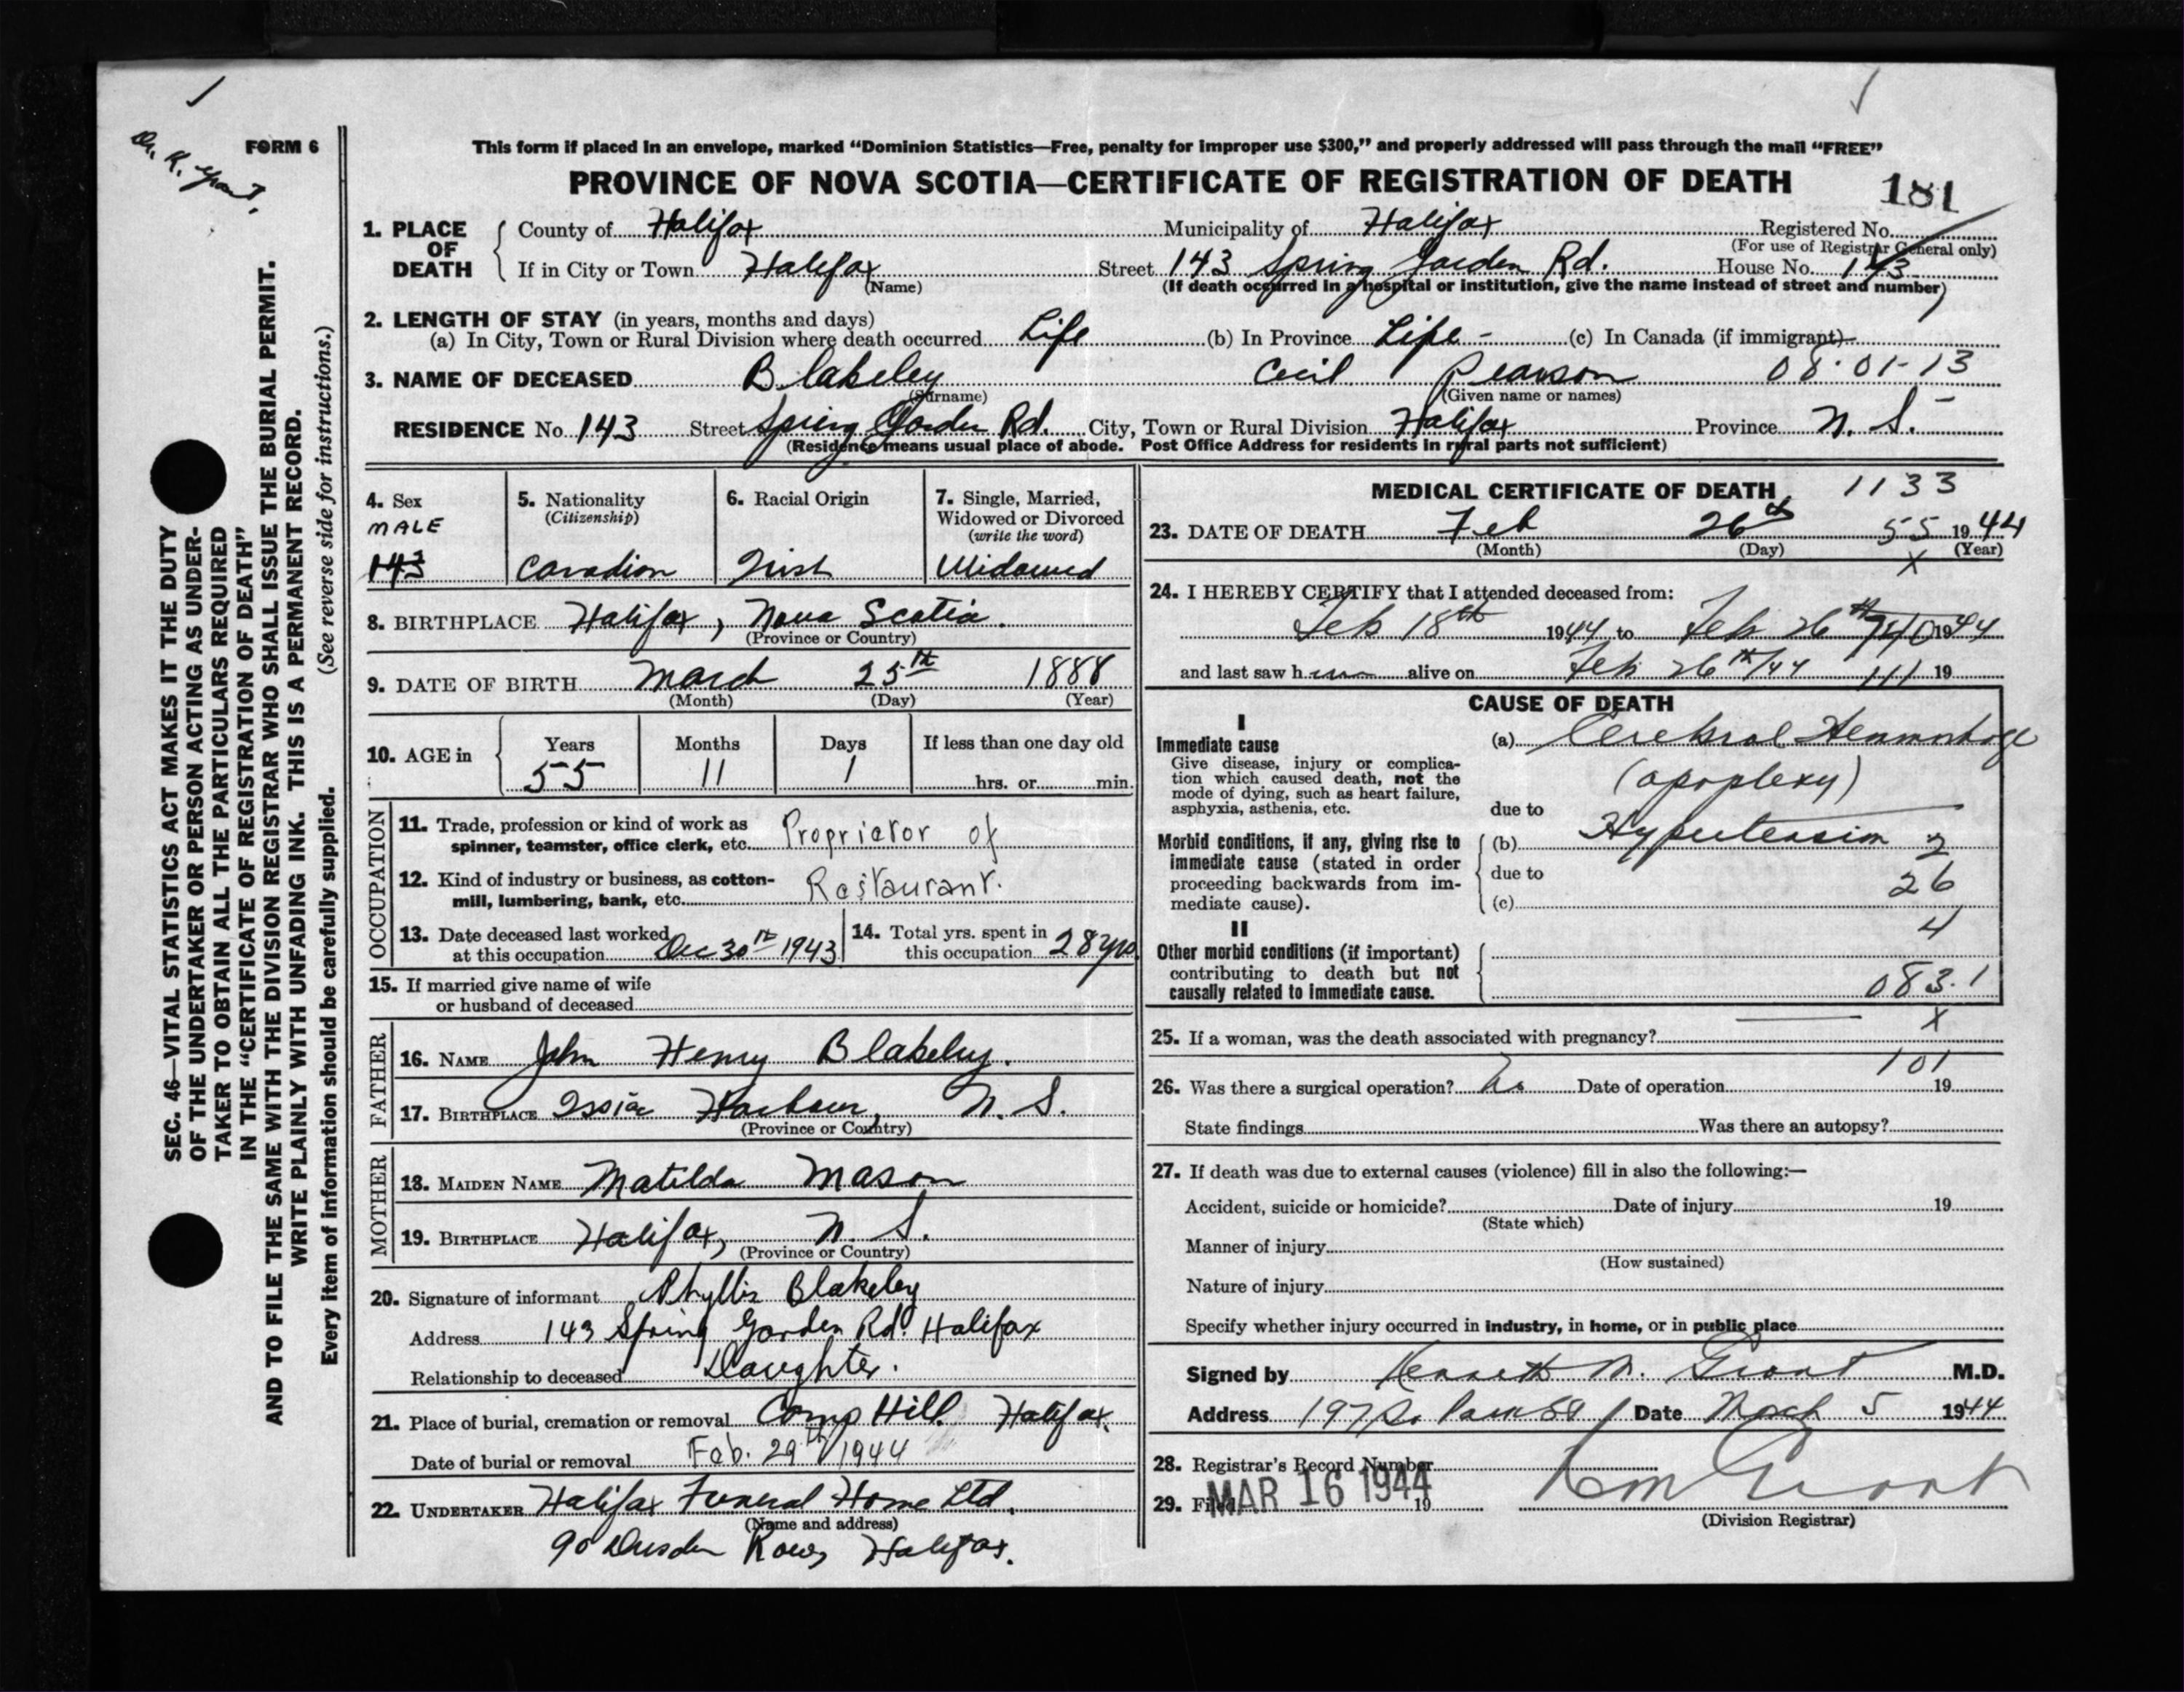 FORM 6
This form if placed in an envelope, marked “Dominion Statistics—Free, penalty for improper use $300,” and properly addressed will pass through the mail “FREE”
PROVINCE OF NOVA SCOTIA—CERTIFICATE OF REGISTRATION OF DEATH 181
1. PLACE OF DEATH County of Halifax Municipality of Halifax Registered No.
(For use of Registrar General only)
If in City or Town Halifax Street 143 Spring Garden Rd. House No. 143
(Name) (If death occurred in a hospital or institution, give the name instead of street and number)
2. LENGTH OF STAY (in years, months and days)
(a) In City, Town or Rural Division where death occurred Life (b) In Province Life - (c) In Canada (if immigrant)
3. NAME OF DECEASED Blakeley Cecil Pearson 08·01-13
(Surname) (Given name or names)
RESIDENCE No. 143 Street Spring Garden Rd. City, Town or Rural Division Halifax Province N. S.
(Residence means usual place of abode. Post Office Address for residents in rural parts not sufficient)
4. Sex
MALE
143
5. Nationality
(Citizenship)
Canadian
6. Racial Origin
Irish
7. Single, Married,
Widowed or Divorced
(write the word)
Widowed
8. BIRTHPLACE Halifax, Nova Scotia.
(Province or Country)
9. DATE OF BIRTH March 25th 1888
(Month) (Day) (Year)
10. AGE in Years Months Days If less than one day old
55 11 1 hrs. or min.
OCCUPATION
11. Trade, profession or kind of work as
spinner, teamster, office clerk, etc. Proprietor of
12. Kind of industry or business, as cotton-
mill, lumbering, bank, etc. Restaurant.
13. Date deceased last worked
at this occupation Dec 30th 1943
14. Total yrs. spent in
this occupation 28 yrs
15. If married give name of wife
or husband of deceased
FATHER
16. NAME John Henry Blakeley.
17. BIRTHPLACE Harbour, N. S.
(Province or Country)
MOTHER
18. MAIDEN NAME Matilda Mason
19. BIRTHPLACE Halifax, N. S.
(Province or Country)
20. Signature of informant Phyllis Blakeley
Address 143 Spring Garden Rd. Halifax
Relationship to deceased Daughter.
21. Place of burial, cremation or removal Camp Hill Halifax.
Date of burial or removal Feb. 29th 1944
22. UNDERTAKER Halifax Funeral Home Ltd.
(Name and address)
90 Dresden Row, Halifax.
MEDICAL CERTIFICATE OF DEATH 1133
23. DATE OF DEATH Feb 26th 55 1944
(Month) (Day) x (Year)
24. I HEREBY CERTIFY that I attended deceased from:
Feb 18th 1944 to Feb 26th 1944
and last saw him alive on Feb 26th/44 111 19
CAUSE OF DEATH
I
Immediate cause
Give disease, injury or complica-
tion which caused death, not the
mode of dying, such as heart failure,
asphyxia, asthenia, etc.
(a) Cerebral Hemmorhage
(apoplexy)
due to
Morbid conditions, if any, giving rise to
immediate cause (stated in order
proceeding backwards from im-
mediate cause).
(b) Hypertension 2
due to 26
(c)
4
II
Other morbid conditions (if important)
contributing to death but not
causally related to immediate cause.
083.1
25. If a woman, was the death associated with pregnancy? x
101
26. Was there a surgical operation? No Date of operation 19
State findings Was there an autopsy?
27. If death was due to external causes (violence) fill in also the following:—
Accident, suicide or homicide? Date of injury 19
(State which)
Manner of injury
(How sustained)
Nature of injury
Specify whether injury occurred in industry, in home, or in public place
Signed by Kenneth M. Grant M.D.
Address 197 So Park St Date March 5 1944
28. Registrar's Record Number
29. Filed MAR 16 1944 19 KM Grant
(Division Registrar)
Dr. K. Grant,
SEC. 46—VITAL STATISTICS ACT MAKES IT THE DUTY
OF THE UNDERTAKER OR PERSON ACTING AS UNDER-
TAKER TO OBTAIN ALL THE PARTICULARS REQUIRED
IN THE “CERTIFICATE OF REGISTRATION OF DEATH”
AND TO FILE THE SAME WITH THE DIVISION REGISTRAR WHO SHALL ISSUE THE BURIAL PERMIT.
WRITE PLAINLY WITH UNFADING INK. THIS IS A PERMANENT RECORD.
Every item of information should be carefully supplied. (See reverse side for instructions.)